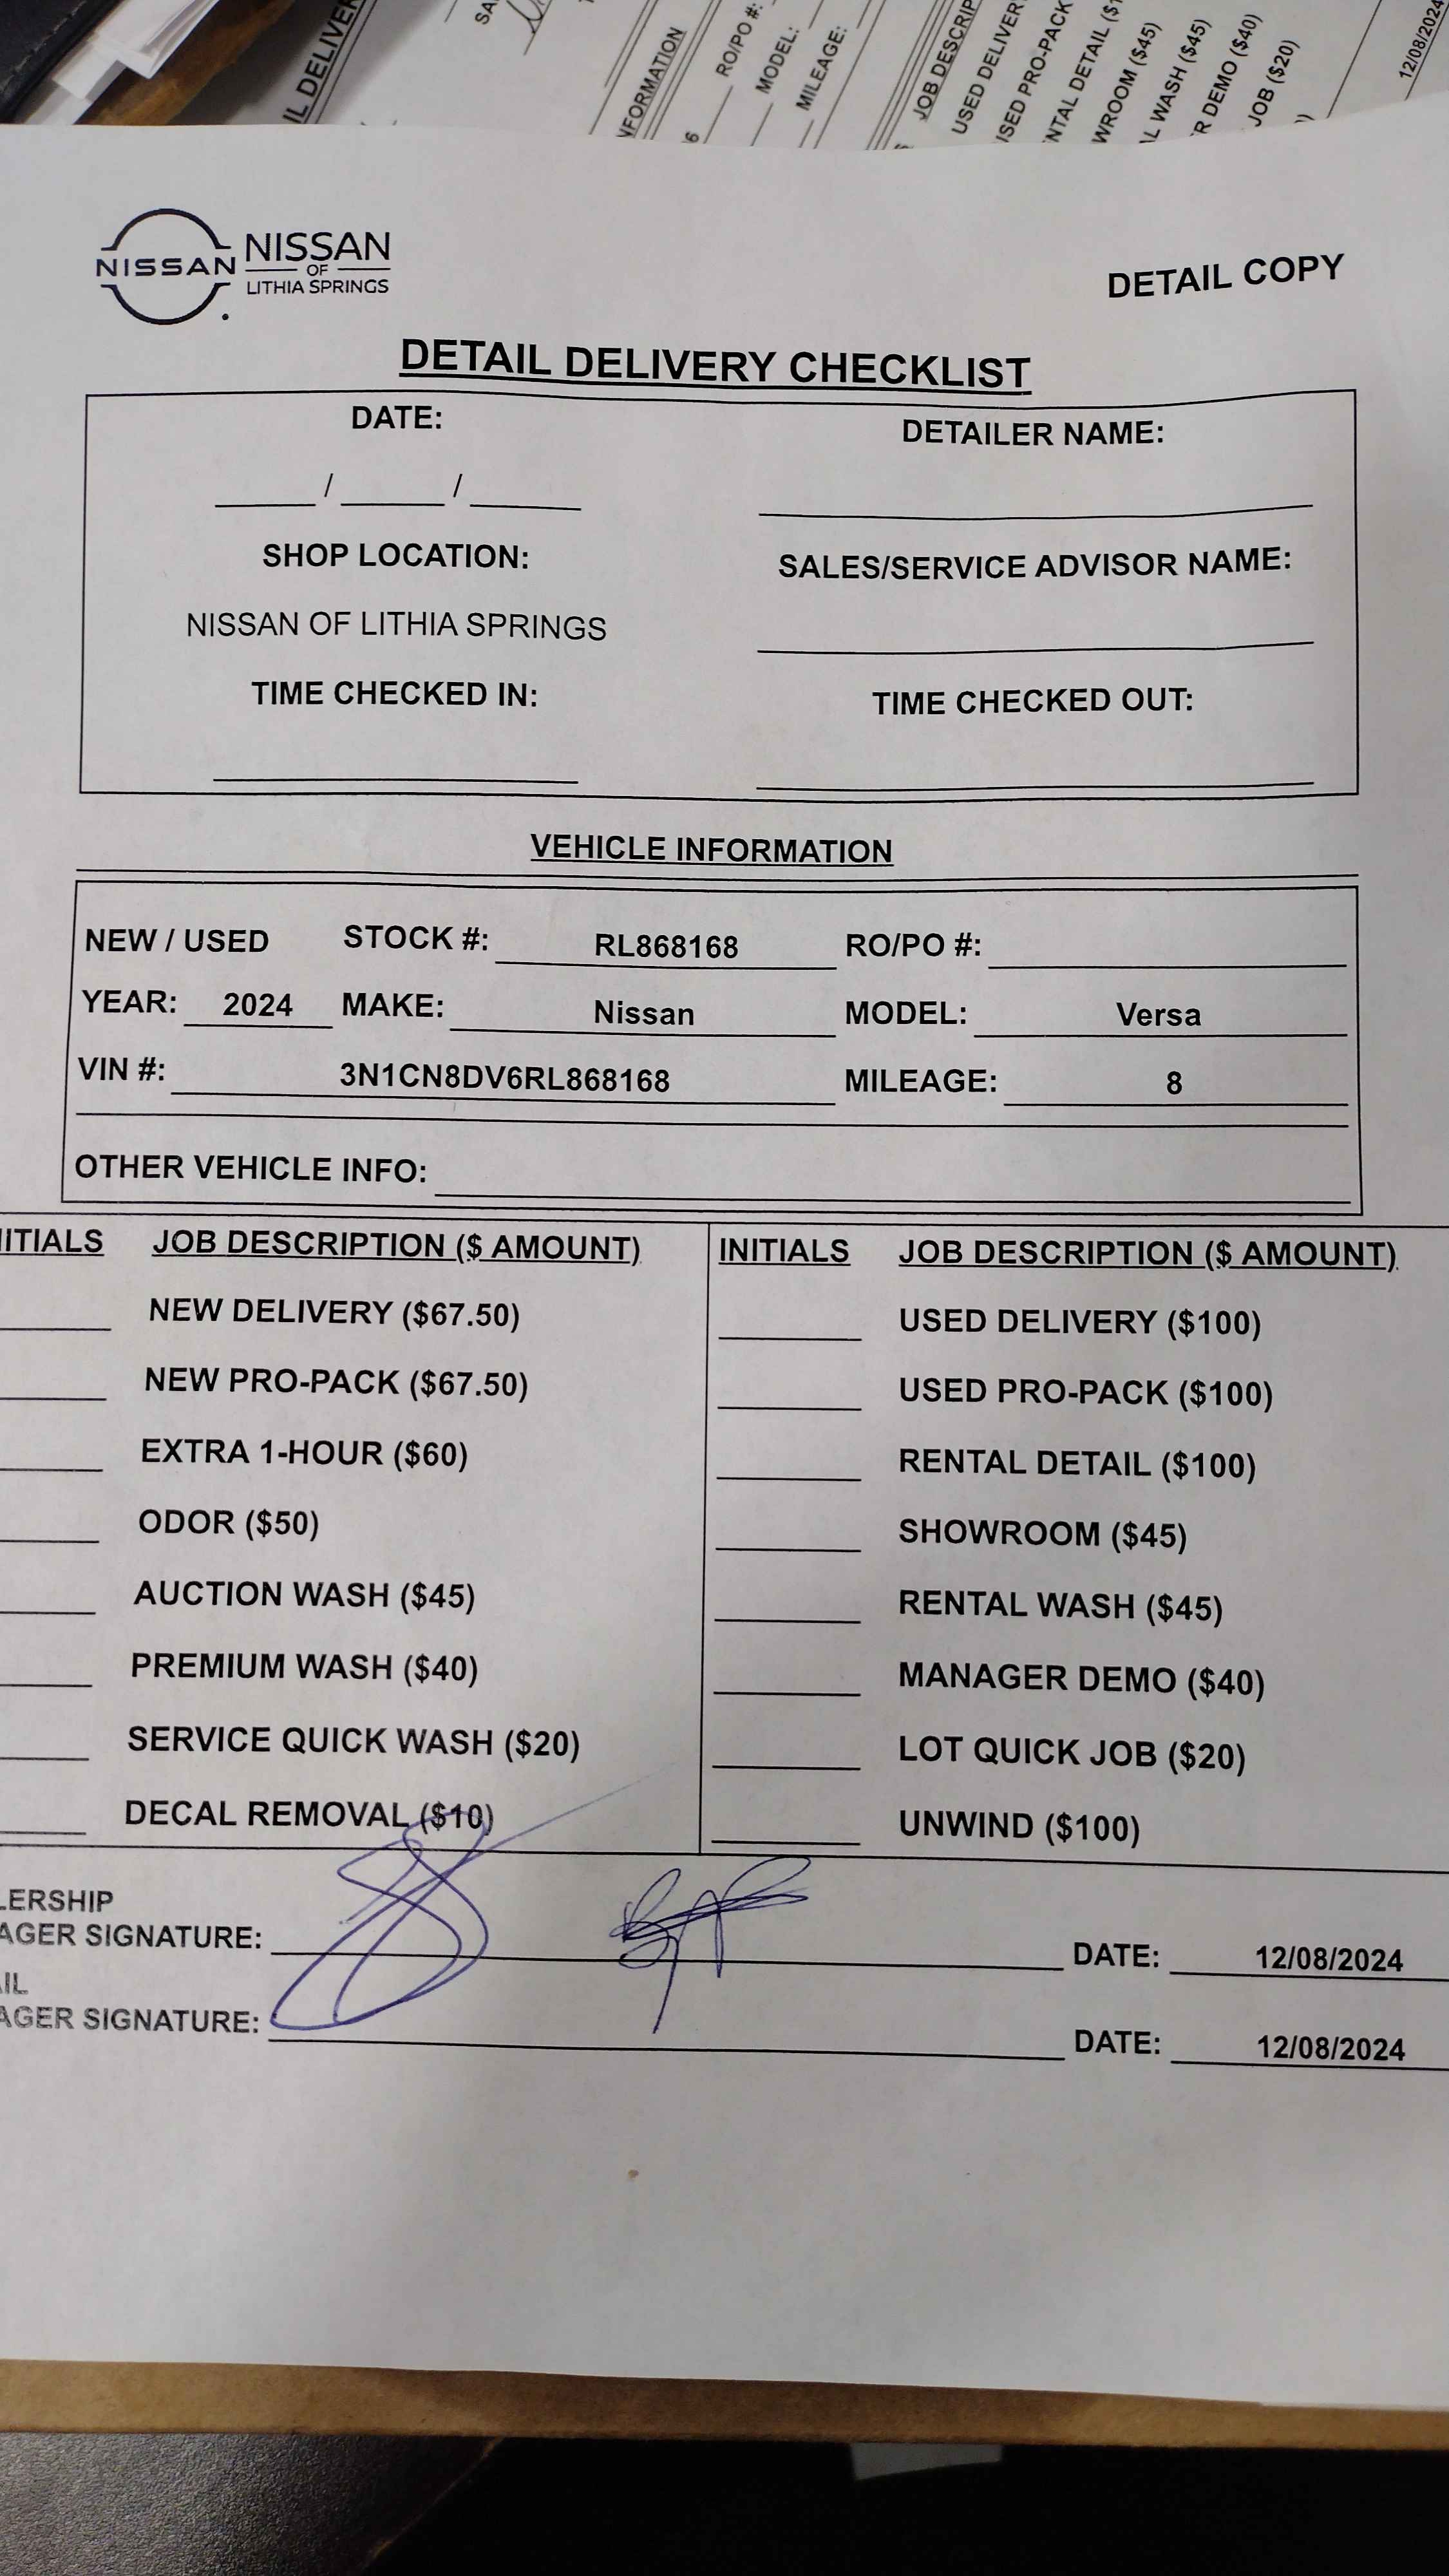 IL DELIVER
NFORMATION
RO/PO #:
MODEL:
MILEAGE:
JOB DESCRIP
USED DELIVER
USED PRO-PACK
NTAL DETAIL ($1
WROOM ($45)
L WASH ($45)
R DEMO ($40)
JOB ($20)
12/08/2024
NISSAN
NISSAN
OF
LITHIA SPRINGS
DETAIL COPY
DETAIL DELIVERY CHECKLIST
DATE: DETAILER NAME:
/ /
SHOP LOCATION: SALES/SERVICE ADVISOR NAME:
NISSAN OF LITHIA SPRINGS
TIME CHECKED IN: TIME CHECKED OUT:
VEHICLE INFORMATION
NEW / USED STOCK #: RL868168 RO/PO #:
YEAR: 2024 MAKE: Nissan MODEL: Versa
VIN #: 3N1CN8DV6RL868168 MILEAGE: 8
OTHER VEHICLE INFO:
ITIALS JOB DESCRIPTION ($ AMOUNT) INITIALS JOB DESCRIPTION ($ AMOUNT)
NEW DELIVERY ($67.50) USED DELIVERY ($100)
NEW PRO-PACK ($67.50) USED PRO-PACK ($100)
EXTRA 1-HOUR ($60) RENTAL DETAIL ($100)
ODOR ($50) SHOWROOM ($45)
AUCTION WASH ($45) RENTAL WASH ($45)
PREMIUM WASH ($40) MANAGER DEMO ($40)
SERVICE QUICK WASH ($20) LOT QUICK JOB ($20)
DECAL REMOVAL ($10) UNWIND ($100)
LERSHIP
AGER SIGNATURE: DATE: 12/08/2024
IL
AGER SIGNATURE: DATE: 12/08/2024